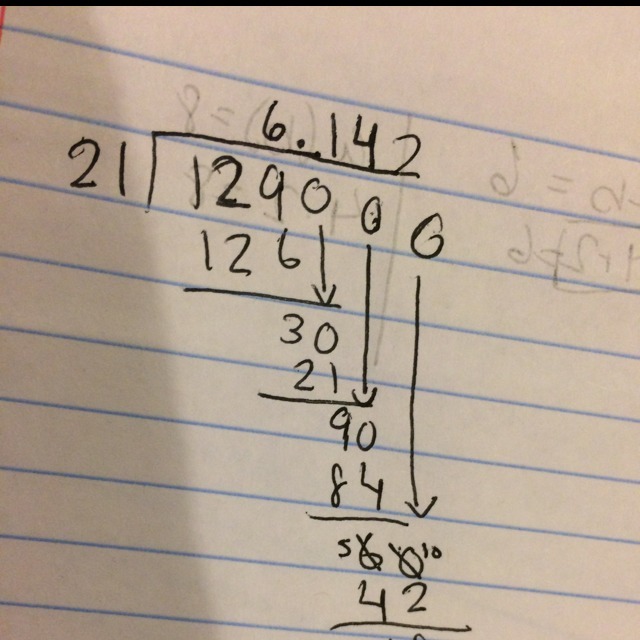 6.142
21 129000
126
30
21
90
84
5 6 0 10
42